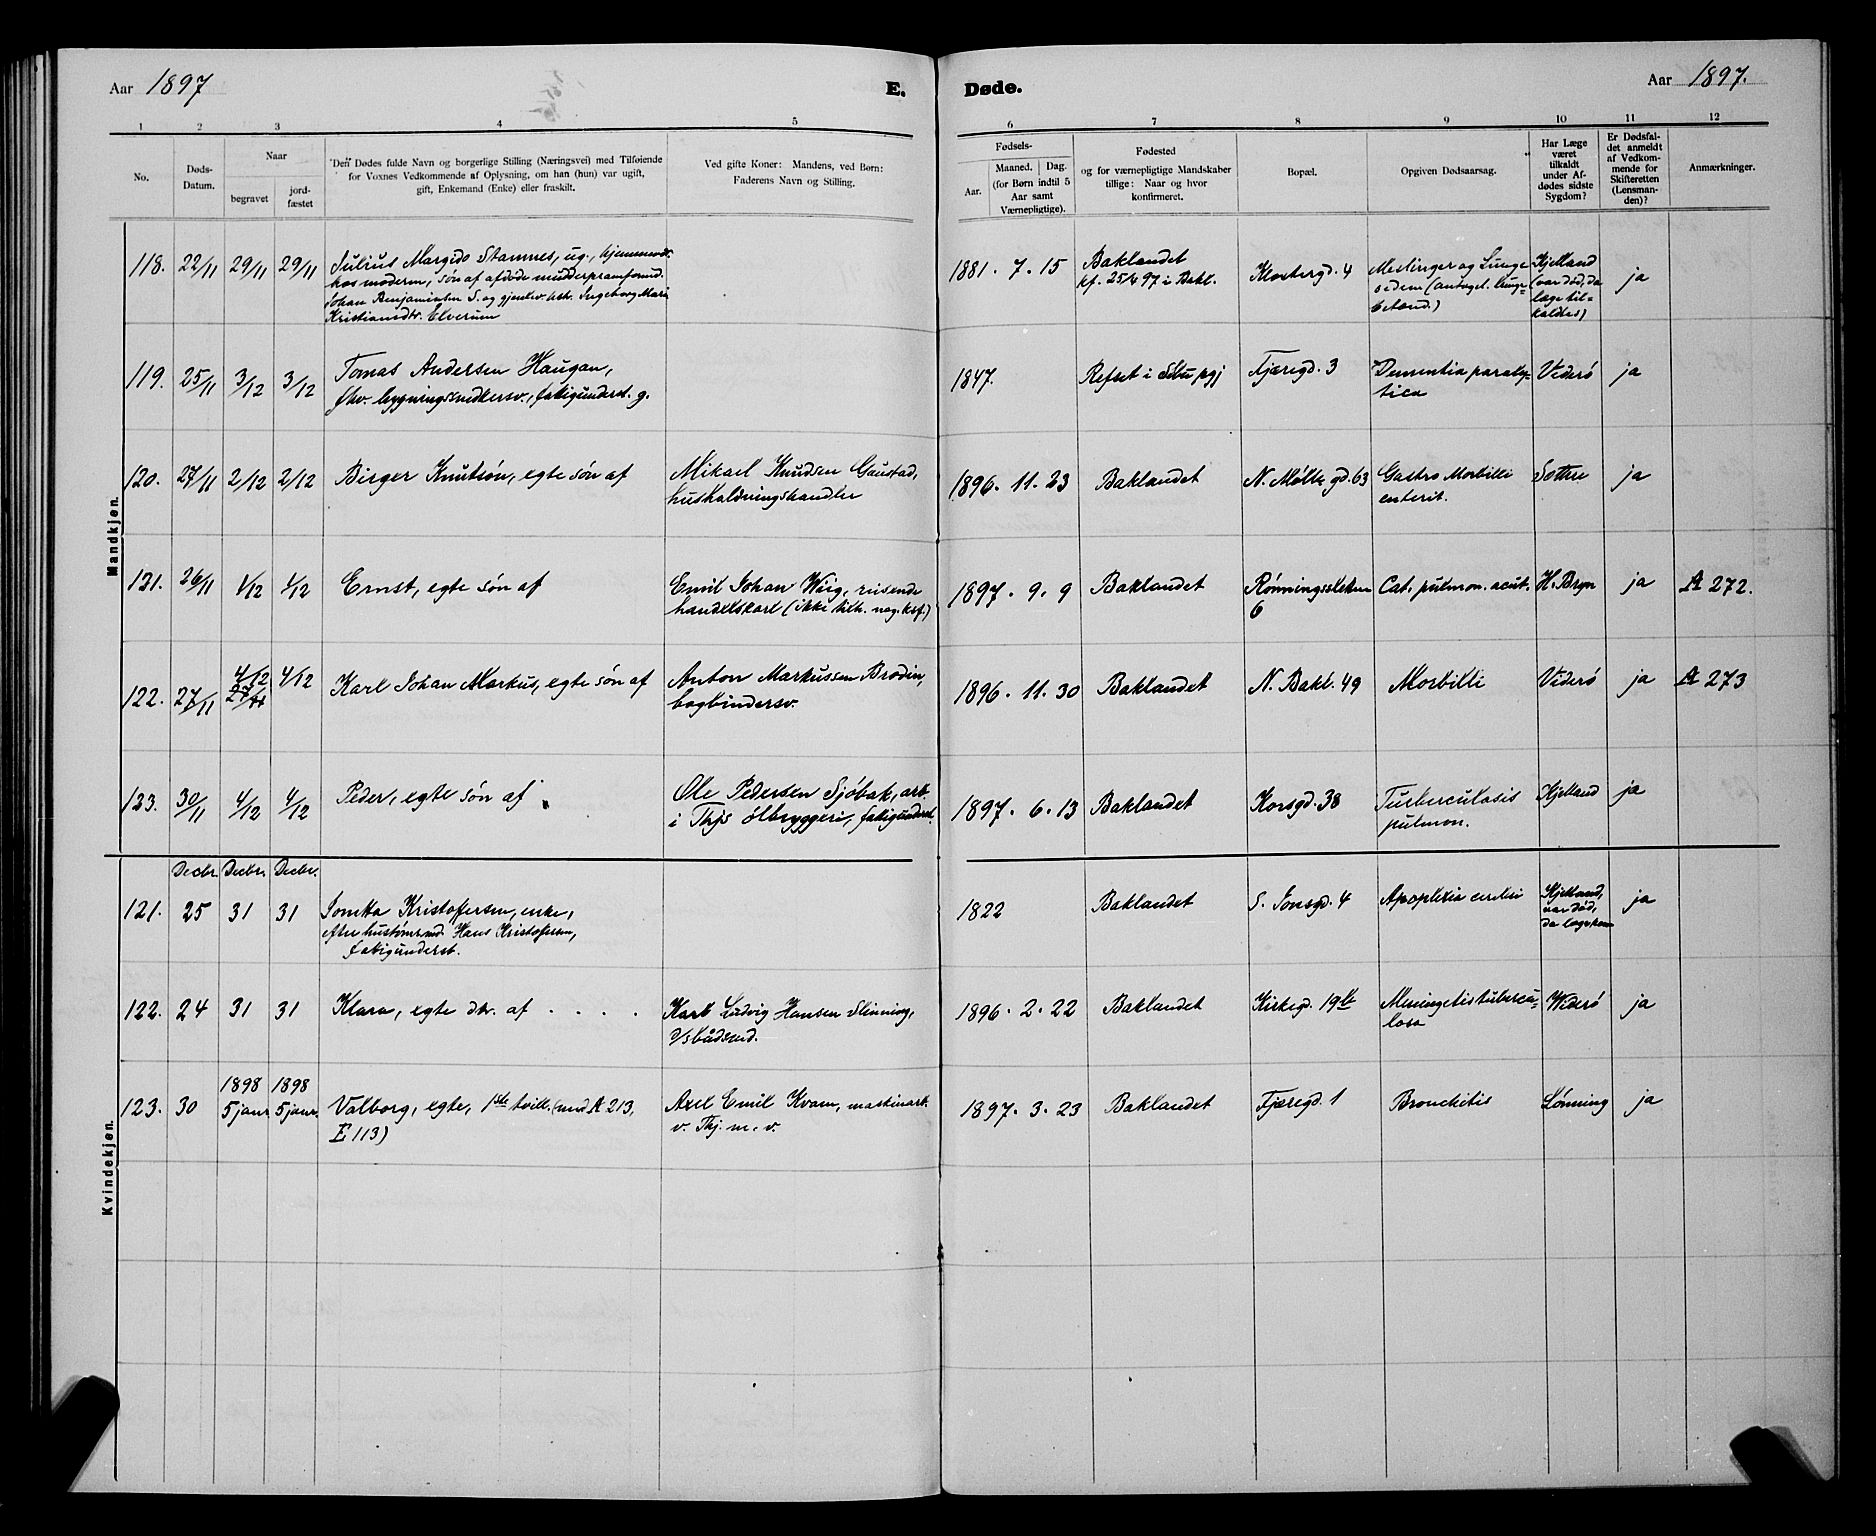 Aar 1897
E. Døde.
Aar 1897.
1 2 3 4 5 6 7 8 9 10 11 12
No.
Døds-
Datum.
Naar
begravet
jord-
fæstet
Den Dødes fulde Navn og borgerlige Stilling (Næringsvei) med Tilføiende
for Voxnes Vedkommende af Oplysning, om han (hun) var ugift,
gift, Enkemand (Enke) eller fraskilt.
Ved gifte Koner: Mandens, ved Børn:
Faderens Navn og Stilling.
Fødsels-
Aar.
Maaned. Dag.
(for Børn indtil 5
Aar samt
Værnepligtige).
Fødested
og for værnepligtige Mandskaber
tillige: Naar og hvor
konfirmeret.
Bopæl.
Opgiven Dødsaarsag.
Har Læge
været
tilkaldt
under Af-
dødes sidste
Sygdom?
Er Dødsfal-
det anmeldt
af Vedkom-
mende for
Skifteretten
(Lensman-
den)?
Anmærkninger.
Mandkjøn.
118. 22/11 29/11 29/11
Julius Margido Stamnes, ug.,
hos moderen, søn af afdøde mudderpramformd.
Johan Benjaminsen S. og gjenlev. hstr. Ingeborg Marie
Kristiansdtr. Elverum
1881. 7. 15
Baklandet
kf. 25/4 97 i Bakl.
Klostergd. 4
Meslinger og Lunge
ødem (antagel. lunge=
betænd.)
Kjelland
(var død, da
læge til=
kaldtes)
ja
119. 25/11 3/12 3/12
Tomas Andersen Haugan,
fhv. bygningssnedkersv., fatigunderst. g.
1847.
Refset i Stbu pgj
Fjæregd. 3
Dementia paraly-
tica
Viderö
ja
120. 27/11 2/12 2/12
Birger Knutsøn, egte søn af
Mikael Knudsen Gaustad,
huskaldningshandler
1896. 11. 23
Baklandet
N. Møllb. gd. 63
Gastro Morbilli
enterit.
Sættre
ja
121. 26/11 1/12 1/12
Ernst, egte søn af
Emil Johan Wiig, reisende
handelskarl (ikke tilh. nog. ksf.)
1897. 9. 9
Baklandet
Rønningssletten
6
Cat. pulmon. acut.
H. Bryn
ja
A 272.
122. 27/11 4/12 27/11 4/12
Karl Johan Markus, egte søn af
Anton Markussen Brodin,
bogbindersv.
1896. 11. 30
Baklandet
N. Bakl. 49
Morbilli
Viderö
ja
A 273
123. 30/11 4/12 4/12
Peder, egte søn af
Ole Pedersen Sjøbak, arb.
i Thjs ølbryggeri, fatigunderst.
1897. 6. 13
Baklandet
Korsgd. 38
Turberculosis
pulmon.
Kjelland
ja
Kvindekjøn.
Decbr. Decbr. Decbr.
121. 25 31 31
Jonetta Kristoffersen, enke,
efter hustømrmd. Hans Kristofersen,
fatigunderst.
1822
Baklandet
S. Jonsgd. 4
Apoplexia cerebri
Kjelland,
var død,
da læge kom
ja
122. 24 31 31
Klara, egte dtr. af . . . .
Karl Ludvig Hansen Slinning,
d/s bådsmd.
1896. 2. 22
Baklandet
Kirkegd. 19b
Meningetis tubercu-
losa
Widerö
ja
123. 30
1898 1898
5 janr. 5 janr.
Valborg, egte, 1ste tvill. (med A 213,
E 113)
Axel Emil Kvam, maskinarb.
v. Thj. m. v.
1897. 3. 23
Baklandet
Fjæregd. 1
Bronchitis
Lønning
ja